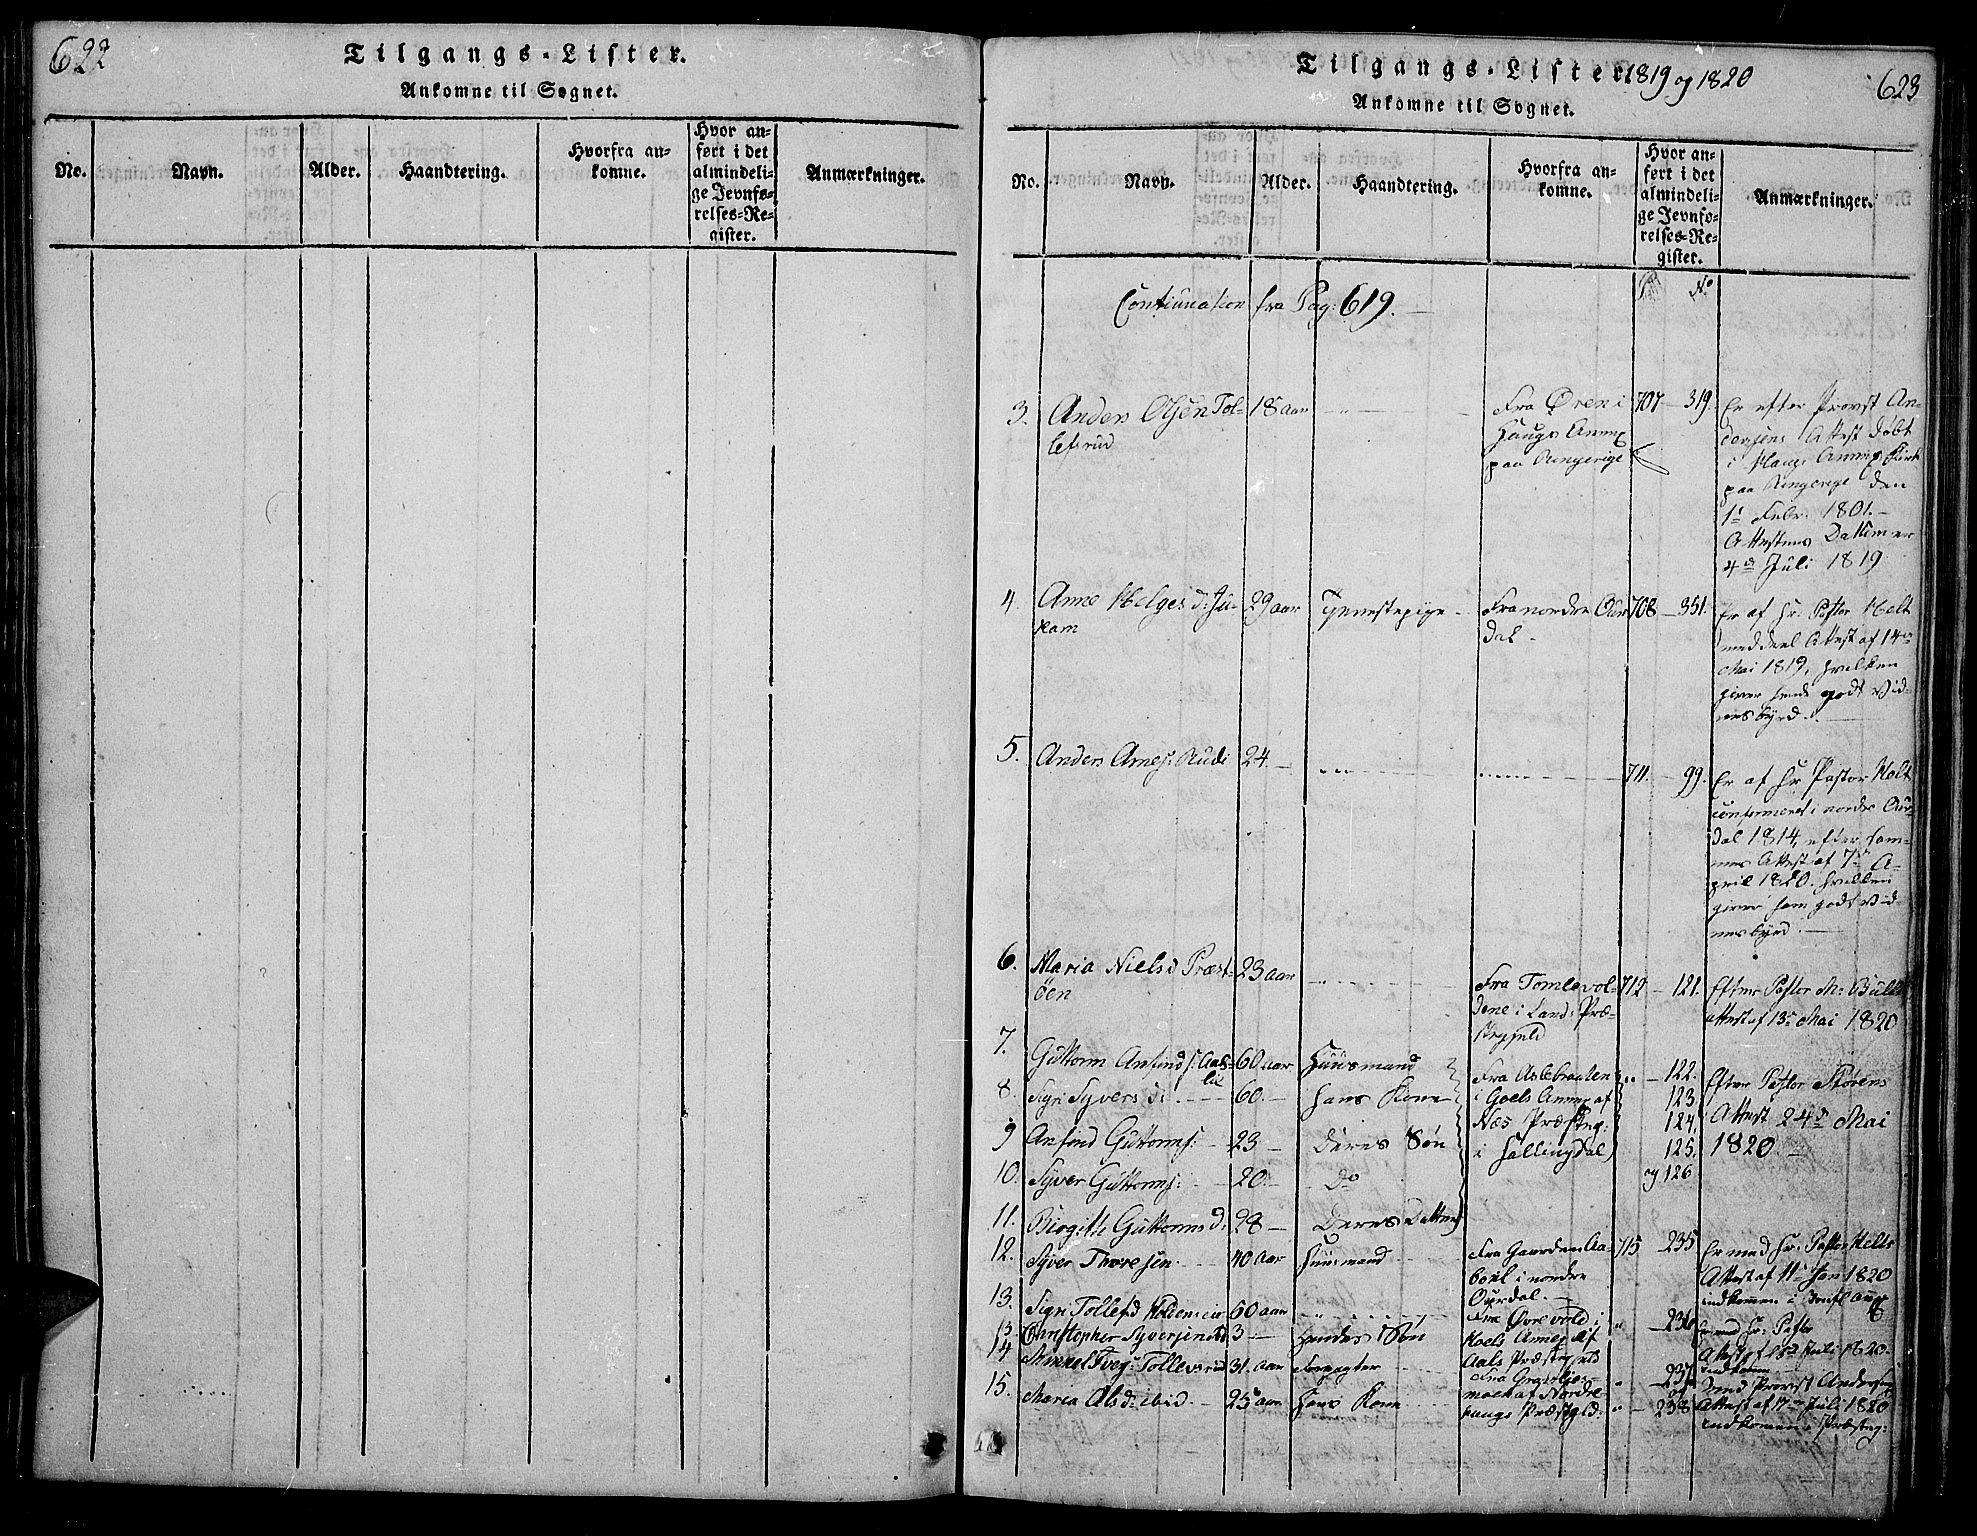 622
Tilgangs-Lister.
Ankomne til Sognet.
No.
Navn.
Alder.
Haandtering.
Hvorfra an-
komne.
Hvor an-
ført i det
almindeli-
ge Jevnfø-
relses-Re-
gister.
Anmærkninger.
Tilgangs-Lister 1819 og 1820
623
Ankomne til Sognet.
No.
Navn.
Alder.
Haandtering.
Hvorfra an-
komne.
Hvor an-
ført i det
almindeli-
ge Jevnfø-
relses-Re-
gister.
Anmærkninger.
No
Continuation fra Pag: 619.
3. Anders Olsen Tol-
lefsrud
18 aar
Fra Øren i
Hougs Annex
paa Ringerige
707 - 319.
Er efter Provst An-
dersens Attest døbt
i Haugs Annex Kirk
paa Ringerige den
1ste Febr. 1801.
Attestens Datum er
4de Juli 1819
4. Anne Helgesd: Ju-
kam
29 aar
Tjenestepige
Fra nordre Our
dal
708 - 351.
Er af Hr. Pastor Holt
meddeel Attest af 14de
Mai 1819, hvilken
giver hende godt Vid-
nesbyrd.
5. Anders Arnes: Rudi
24
711. - 99.
Er af Hr Pastor Holt
confirmeret i nordre Our-
dal 1814, efter sam-
mes Attest af 7de A-
pril 1820. hvilken
giver ham godt Vid-
nesbyrd.
6. Maria Nielsd Præst-
øen
23 aar
Fra Tomlevol-
dene i Lands Præ-
stegjeld
712 - 121.
Efter Pastor M: Bulls
Attest af 13de Mai 1820
7. Guttorm Anfinds: Aals-
lie
60 aar
Huusmand
Fra Aslebraaten
i Goels Annex af
Næs Præsteg:
i Hallingdal
122.
123
124,
125,
og 126
Efter Pastor Störens
Attest 24de Mai
1820
8. Sigri Syversd:
60.
Hans Kone
9 Anfind Guttorms:
23
Deres Søn
10. Syver Guttorms:
20.
Do
11. Birgitte Guttormsd:
28
Deres Datter
12. Syver Thoresen
40 aar
Huusmand
Fra Gaarden Aa-
bøel i nordre
Ourdal.
715 235
Er med Hr. Pastor Holts
Attest af 11te Jan 1820
indkommen i Annex
13. Sigri Tollefsd
60 aar
Fra Øvrevold i
236
Er med Hr. Pastor
13 Christopher Syversen
3
Hendes Søn
Hoels Annex af
Aals Præstegjeld
Attest af 18de Juli 1820.
14 Tollevsrud
31. aar
Forpagter
Fra
237
og
med Provst Andersens
15. Maria Olsd: ibid
25 aar
Hans Kone
af Nordre
Hougs Præstgjld:
238
Attest af 17de Juli 1820
indkommen i Præsteg: